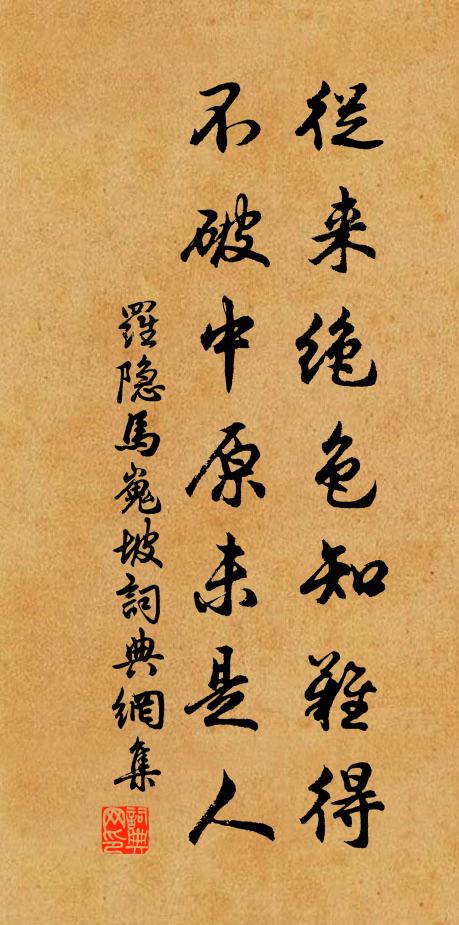 從来绝色知難得
不破中原未是人
羅隐馬嵬坡詞典網集
詞典网印